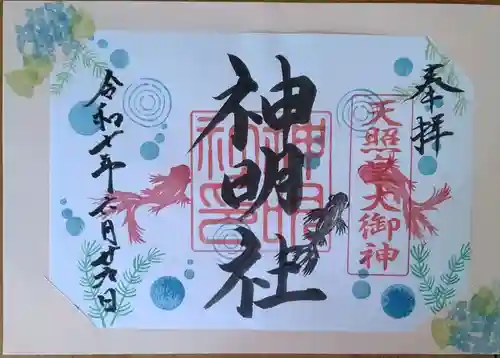 奉拝
天照皇大御神
神明社
神明
社印
令和七年六月廿六日